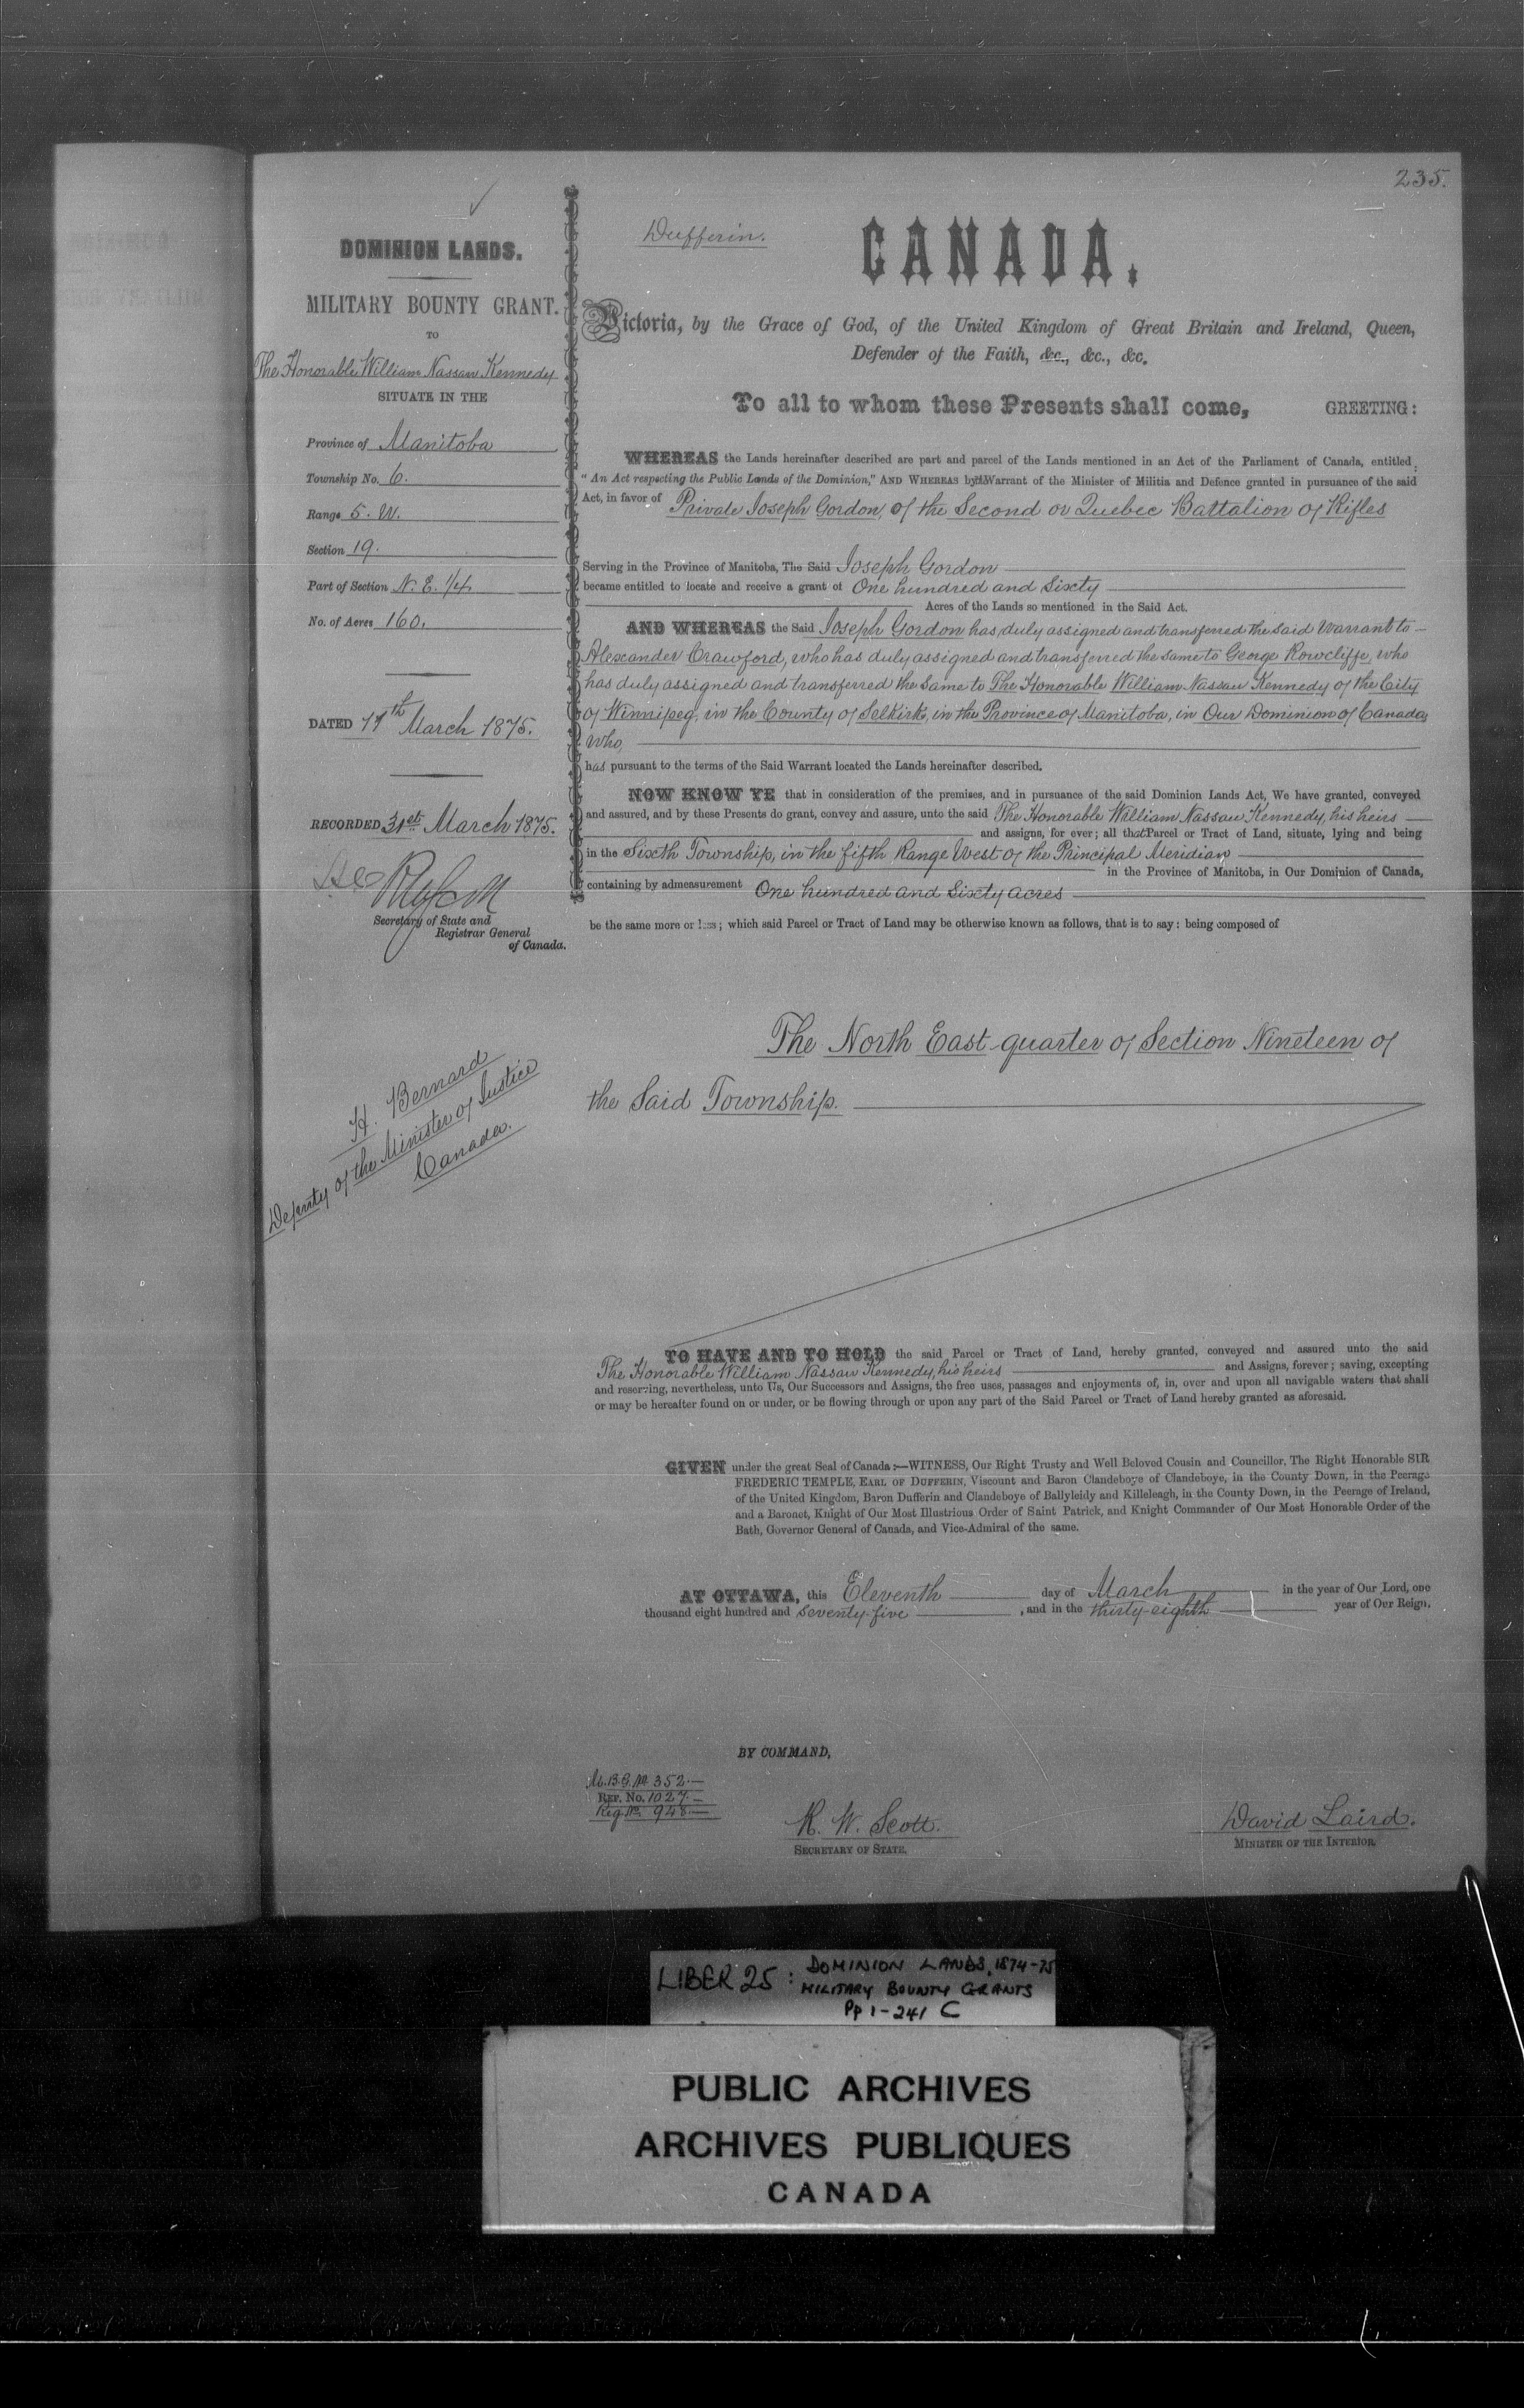 235.
DOMINION LANDS.
MILITARY BOUNTY GRANT.
TO
The Honorable William Nassau Kennedy
SITUATE IN THE
Province of Manitoba
Township No. 6.
Range 5. W.
Section 19.
Part of Section N. E. 1/4
No. of Acres 160.
DATED 11th March 1875.
RECORDED 31st March 1875.
Secretary of State and
Registrar General
of Canada.
H. Bernard
Deputy of the Minister of Justice
Canada.
Dufferin.
CANADA.
Victoria, by the Grace of God, of the United Kingdom of Great Britain and Ireland, Queen,
Defender of the Faith, &c., &c., &c.
To all to whom these Presents shall come, GREETING:
WHEREAS the Lands hereinafter described are part and parcel of the Lands mentioned in an Act of the Parliament of Canada, entitled
"An Act respecting the Public Lands of the Dominion," AND WHEREAS by Warrant of the Minister of Militia and Defence granted in pursuance of the said
Act, in favor of Private Joseph Gordon, of the Second or Quebec Battalion of Rifles
Serving in the Province of Manitoba, The Said Joseph Gordon
became entitled to locate and receive a grant of One hundred and Sixty
Acres of the Lands so mentioned in the Said Act.
AND WHEREAS the Said Joseph Gordon has duly assigned and transferred the Said Warrant to
Alexander Crawford, who has duly assigned and transferred the same to George Rowcliffe, who
has duly assigned and transferred the same to The Honorable William Nassau Kennedy of the City
of Winnipeg, in the County of Selkirk, in the Province of Manitoba, in Our Dominion of Canada,
who,
has pursuant to the terms of the Said Warrant located the Lands hereinafter described.
NOW KNOW YE that in consideration of the premises, and in pursuance of the said Dominion Lands Act, We have granted, conveyed
and assured, and by these Presents do grant, convey and assure, unto the said The Honorable William Nassau Kennedy, his heirs
and assigns, for ever; all that Parcel or Tract of Land, situate, lying and being
in the Sixth Township, in the fifth Range West of the Principal Meridian
in the Province of Manitoba, in Our Dominion of Canada,
containing by admeasurement One hundred and Sixty acres
be the same more or less; which said Parcel or Tract of Land may be otherwise known as follows, that is to say: being composed of
The North East quarter of Section Nineteen of
the Said Township.
TO HAVE AND TO HOLD the said Parcel or Tract of Land, hereby granted, conveyed and assured unto the said
The Honorable William Nassau Kennedy, his heirs and Assigns, forever; saving, excepting
and reserving, nevertheless, unto Us, Our Successors and Assigns, the free uses, passages and enjoyments of, in, over and upon all navigable waters that shall
or may be hereafter found on or under, or be flowing through or upon any part of the Said Parcel or Tract of Land hereby granted as aforesaid.
GIVEN under the great Seal of Canada:—WITNESS, Our Right Trusty and Well Beloved Cousin and Councillor, The Right Honorable SIR
FREDERIC TEMPLE, EARL OF DUFFERIN, Viscount and Baron Clandeboye of Clandeboye, in the County Down, in the Peerage
of the United Kingdom, Baron Dufferin and Clandeboye of Ballyleidy and Killeleagh, in the County Down, in the Peerage of Ireland,
and a Baronet, Knight of Our Most Illustrious Order of Saint Patrick, and Knight Commander of Our Most Honorable Order of the
Bath, Governor General of Canada, and Vice-Admiral of the same.
AT OTTAWA, this Eleventh day of March in the year of Our Lord, one
thousand eight hundred and Seventy-five, and in the thirty-eighth year of Our Reign.
BY COMMAND,
M.B.G. No 352.
REF. No. 1027.
Reg. No. 948.
R. W. Scott.
SECRETARY OF STATE.
David Laird.
MINISTER OF THE INTERIOR.
LIBER 25: DOMINION LANDS, 1874-75
MILITARY BOUNTY GRANTS
Pp 1-241 C
PUBLIC ARCHIVES
ARCHIVES PUBLIQUES
CANADA